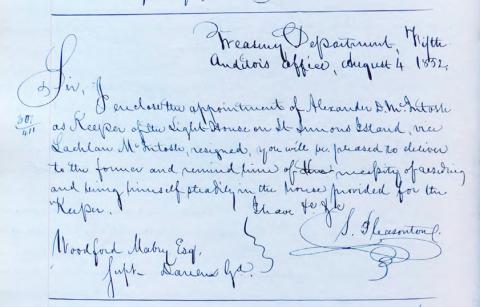 Treasury Department, Fifth
Auditors Office, August 4 1852,
Sir,
I enclose the appointment of Alexander D. McIntosh
as Keeper of the Light House on St Simons Island, vice
Lachlan McIntosh, resigned, you will be pleased to deliver
to the former and remind him of the necessity of residing
and being himself steadily in the house provided for the
Keeper.
I have &c &c
S. Pleasonton.
Woodford Mabry Esq.
Supt Darien Ga.